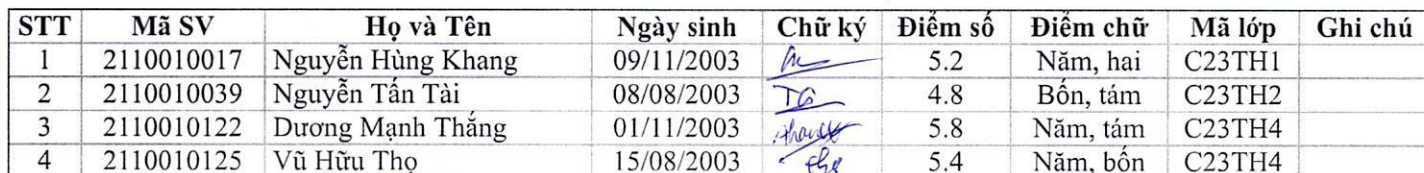 STT Mã SV Họ và Tên Ngày sinh Chữ ký Điểm số Điểm chữ Mã lớp Ghi chú
1 2110010017 Nguyễn Hùng Khang 09/11/2003 5.2 Năm, hai C23TH1
2 2110010039 Nguyễn Tấn Tài 08/08/2003 4.8 Bốn, tám C23TH2
3 2110010122 Dương Mạnh Thắng 01/11/2003 5.8 Năm, tám C23TH4
4 2110010125 Vũ Hữu Thọ 15/08/2003 5.4 Năm, bốn C23TH4